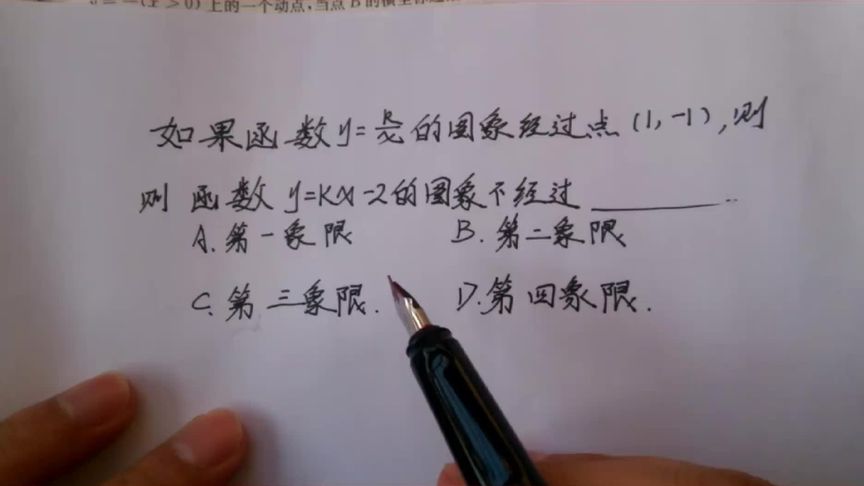 (x>0)上的一个动点,当点B的横坐标
如果函数y=k/x的图象经过点(1,-1),则
则 函数 y=kx-2的图象不经过 ________.
A.第一象限 B.第二象限
C.第三象限. D.第四象限.